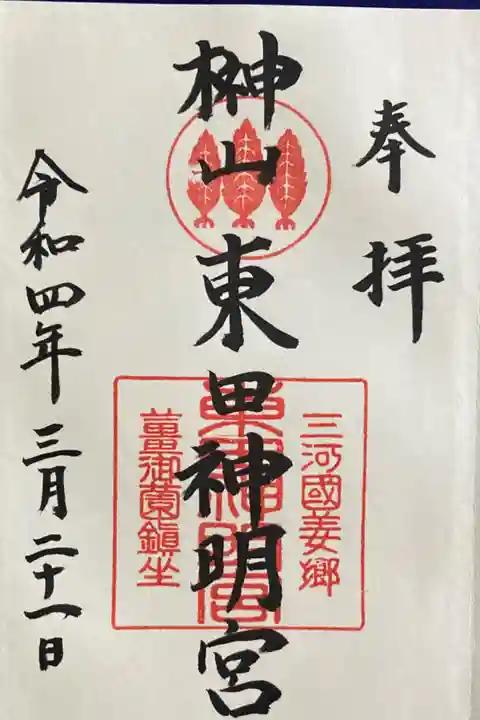 奉拝
榊山東田神明宮
三河國姜郷
東田神明宮
薑御薗鎮坐
令和四年三月二十一日